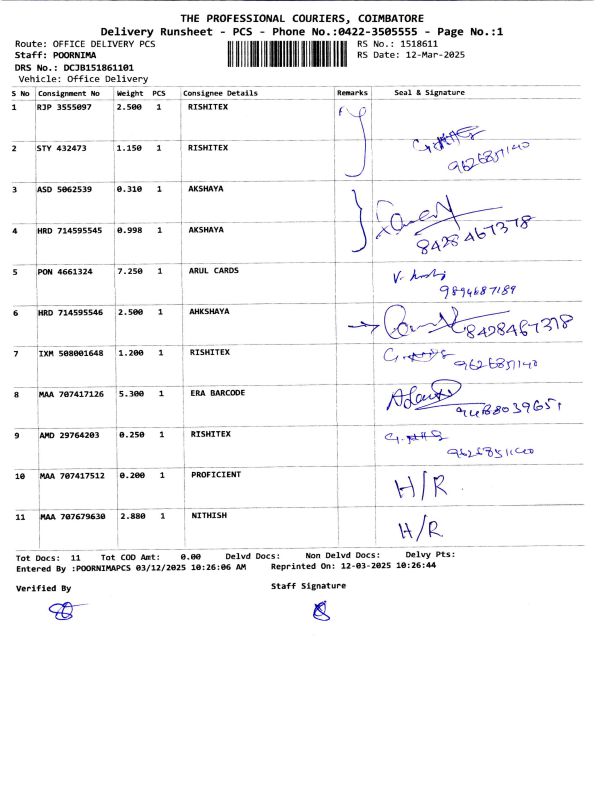 THE PROFESSIONAL COURIERS, COIMBATORE
Delivery Runsheet - PCS - Phone No.:0422-3505555 - Page No.:1
Route: OFFICE DELIVERY PCS RS No.: 1518611
Staff: POORNIMA RS Date: 12-Mar-2025
DRS No.: DCJB151861101
Vehicle: Office Delivery
S No Consignment No Weight PCS Consignee Details Remarks Seal & Signature
1 RJP 3555097 2.500 1 RISHITEX
2 STY 432473 1.150 1 RISHITEX
9626851140
3 ASD 5062539 0.310 1 AKSHAYA
4 HRD 714595545 0.998 1 AKSHAYA 8428467378
5 PON 4661324 7.250 1 ARUL CARDS
9894687189
6 HRD 714595546 2.500 1 AHKSHAYA 8428467378
7 IXM 508001648 1.200 1 RISHITEX 9626851140
8 MAA 707417126 5.300 1 ERA BARCODE
9488039651
9 AMD 29764203 0.250 1 RISHITEX
9626851140
10 MAA 707417512 0.200 1 PROFICIENT H/R
11 MAA 707679630 2.880 1 NITHISH H/R
Tot Docs: 11 Tot COD Amt: 0.00 Delvd Docs: Non Delvd Docs: Delvy Pts:
Entered By :POORNIMAPCS 03/12/2025 10:26:06 AM Reprinted On: 12-03-2025 10:26:44
Verified By Staff Signature